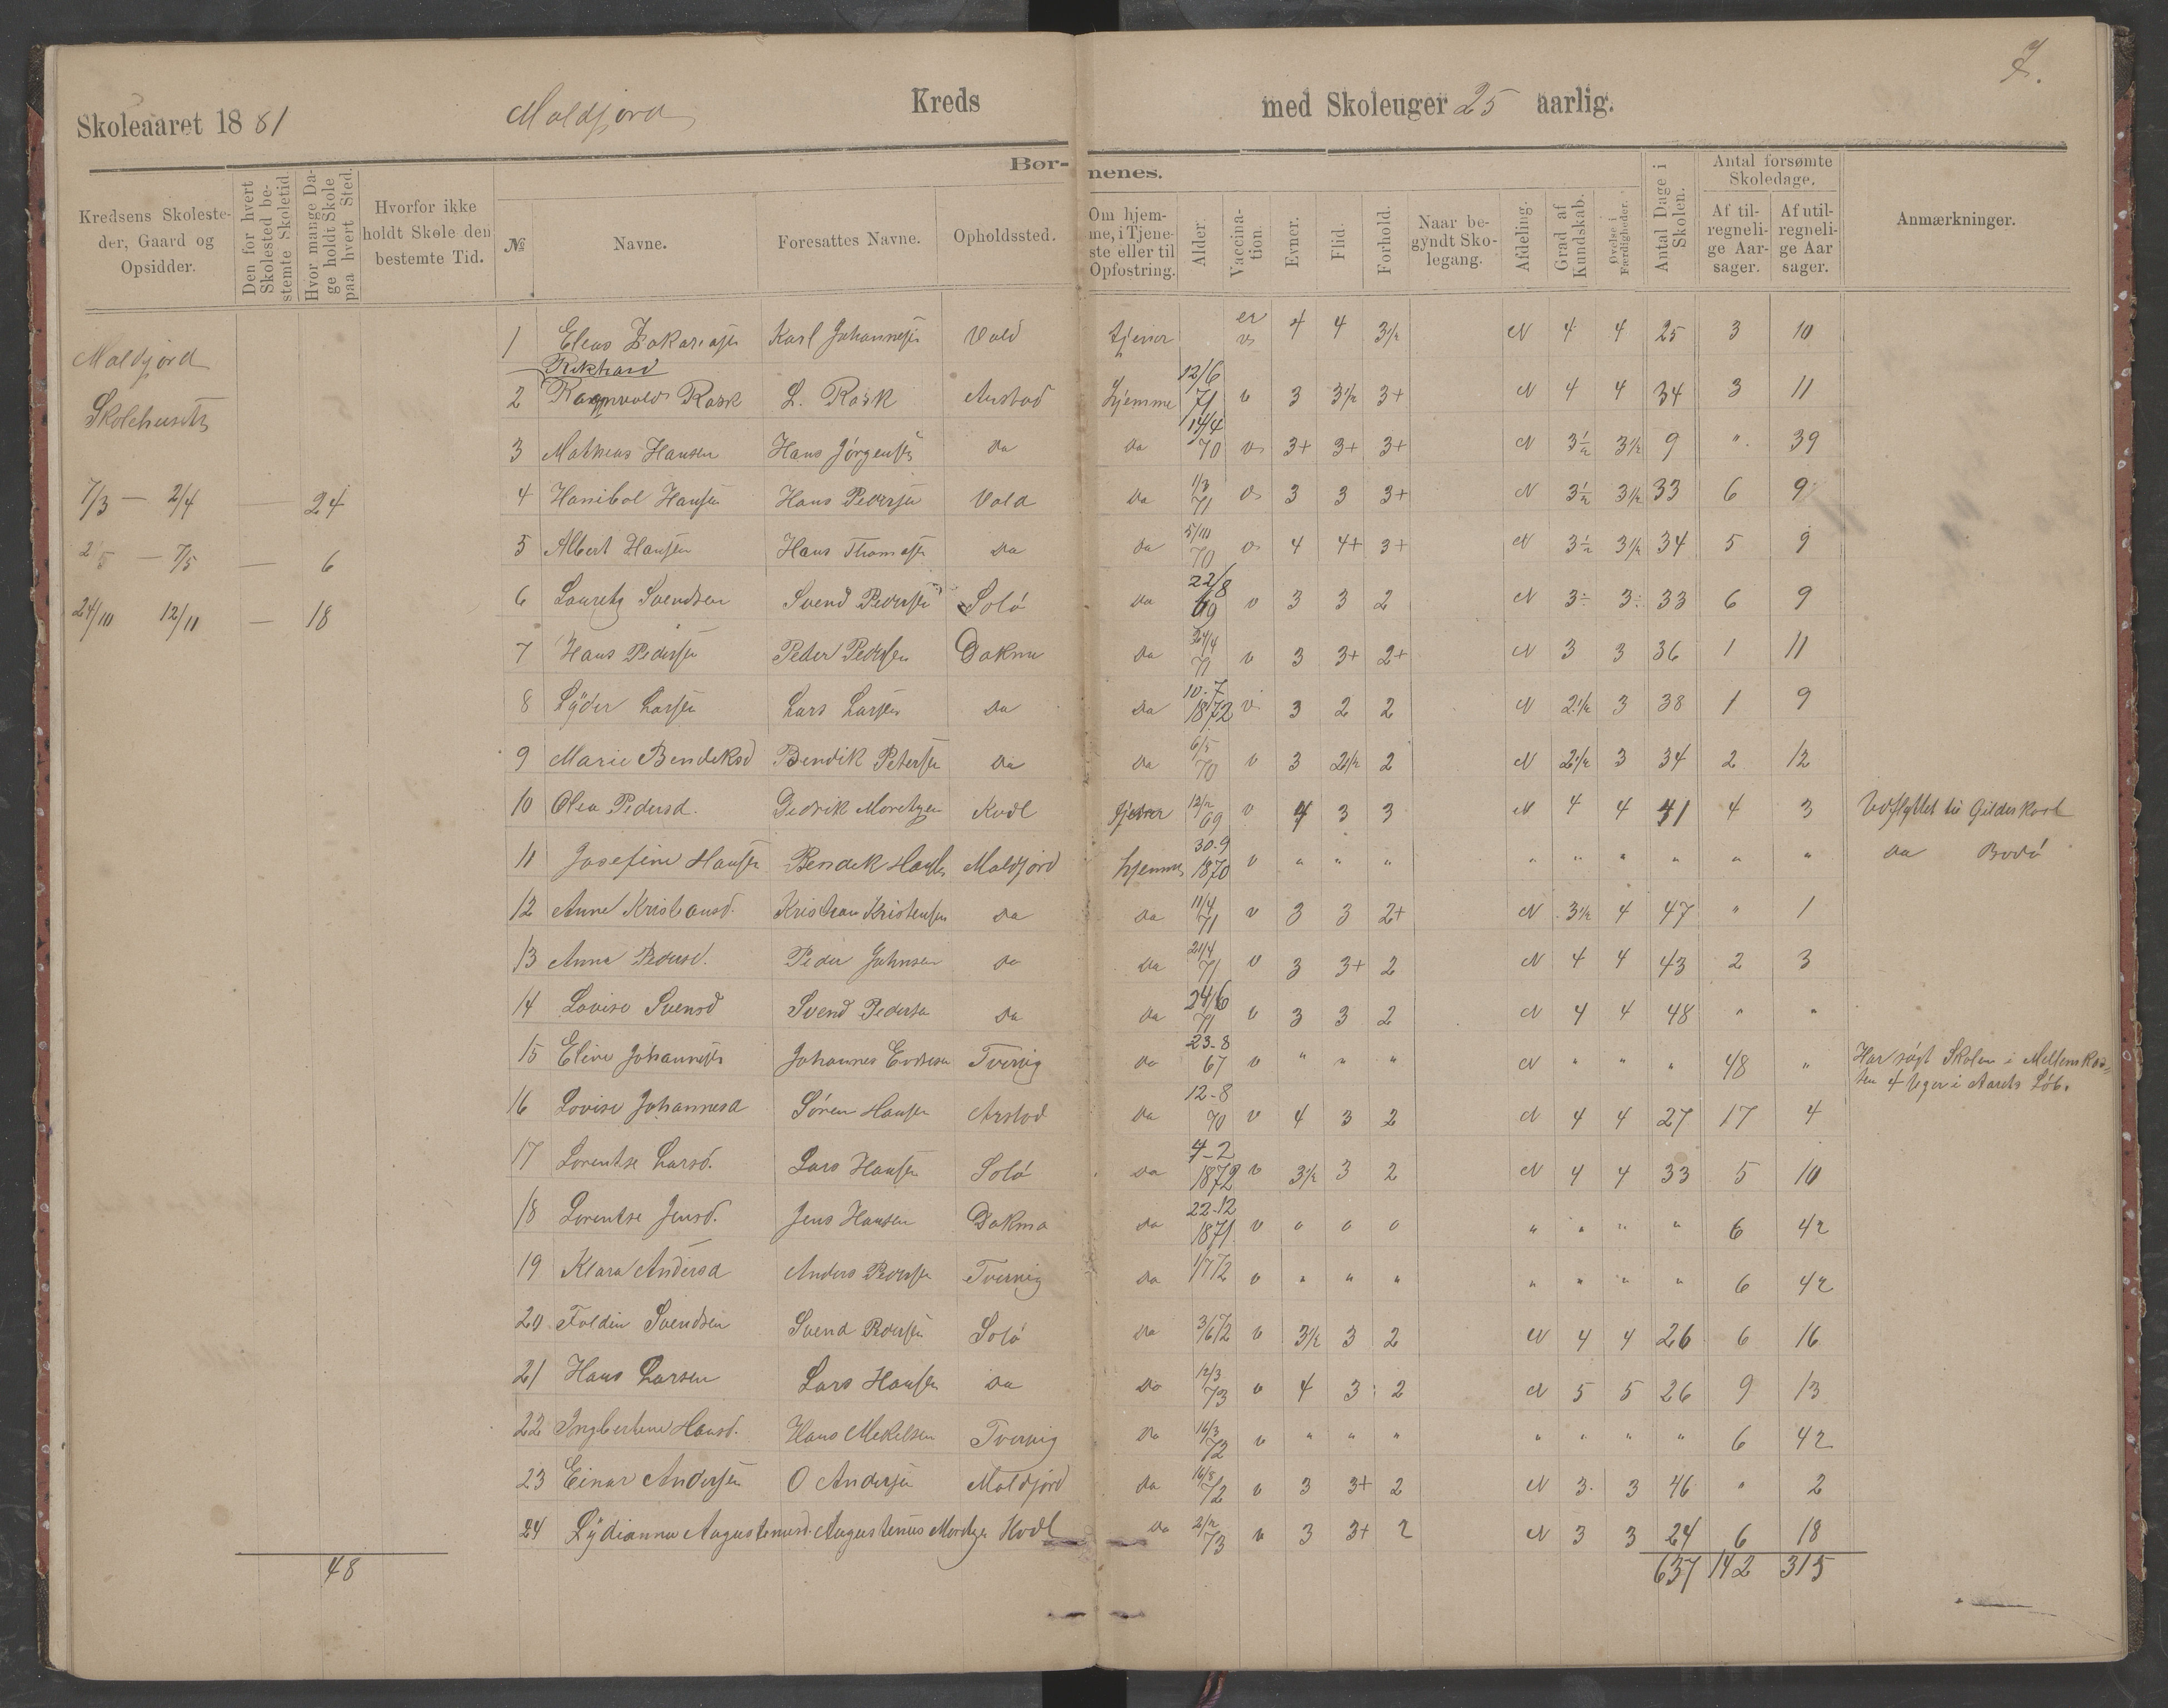 7.
Skoleaaret 1881 Maldjord Kreds med Skoleuger 25 aarlig.
Børnenes.
Kredsens Skolesteder, Gaard og Opsidder.
Den for hvert Skolested bestemte Skoletid.
Hvor mange Dage holdt Skole paa hvert Sted.
Hvorfor ikke holdt Skole den bestemte Tid.
№ Navne. Foresattes Navne. Opholdssted.
Om hjemme, i Tjeneste eller til Opfostring.
Alder. Vaccination. Evner. Flid. Forhold.
Naar begyndt Skolegang.
Afdeling. Grad af Kundskab. Øvelse i Færdigheder. Antal Dage i Skolen.
Antal forsømte Skoledage.
Af tilregnelige Aarsager. Af utilregnelige Aarsager.
Anmærkninger.
Maldjord
Skolehuset
7/3 — 2/4 — 24
2/5 — 7/5 — 6
24/10 12/11 — 18
48
1 Elias Zakariasen Karl Johannesen Vald tjener 4 4 3½ N 4 4 25 3 10
Rikhard
2 Ragnvald Rask L. Rask Aastad hjemme 12/6 71 v 3 3½ 3+ N 4 4 34 3 11
3 Mathias Hansen Hans Jørgensen da da 14/4 70 v 3+ 3+ 3+ N 3½ 3½ 9 " 39
4 Hanibal Hansen Hans Pedersen Vald da 1/3 71 v 3 3 3+ N 3½ 3½ 33 6 9
5 Albert Hansen Hans Thomasen da da 5/10 70 v 4 4+ 3+ N 3½ 3½ 34 5 9
6 Lauritz Svendsen Svend Pedersen Solø da 22/8 69 v 3 3 2 N 3÷ 3÷ 33 6 9
7 Hans Pedersen Peder Pedersen Dokmo da 24/4 71 v 3 3+ 2+ N 3 3 36 1 11
8 Lÿder Larsen Lars Larsen da da 10-7 1872 v 3 2 2 N 2½ 3 38 1 9
9 Marie Bendiksd Bendik Petersen da da 6/5 70 v 3 2½ 2 N 2½ 3 34 2 12
10 Olea Pedersd. Didrik Moritzen Kvål tjener 12/2 69 v 4 3 3 N 4 4 41 4 3 Udflyttet til Gildeskaal
11 Josefine Hansen Bendik Hansen Maldjord hjemme 30-9 1870 v " " " " " " " " " da Bodø
12 Anne Kristiansd. Kristian Kristensen da da 11/4 71 v 3 3 2+ N 3½ 4 47 " 1
13 Anna Pedersd. Peder Johnsen da da 21/4 71 v 3 3+ 2 N 4 4 43 2 3
14 Lovise Svensd Svend Pedersen da da 24/6 71 v 3 3 2 N 4 4 48 " "
15 Eline Johannesen Johannes Tvervig da 23-8 67 v " " " N " " " 48 " Har søgt Skolen i
4 Uger i Aarets Løb.
16 Lovise Johannesd Søren Hansen Arstad da 12-8 70 v 4 3 2 N 4 4 27 17 4
17 Lorentse Larsd. Lars Hansen Solø da 4-2 1872 v 3½ 3 2 N 4 4 33 5 10
18 Lorentse Jensd. Jens Hansen Dokmo da 22-12 1871 v " " " " " " " 6 42
19 Klara Andersd Anders Pedersen Tvervig da 1/7 72 v " " " " " " " 6 42
20 Foldin Svendsen Svend Pedersen Solø da 3/6 72 v 3½ 3 2 N 4 4 26 6 16
21 Hans Larsen Lars Hansen da da 12/3 73 v 4 3 2 N 5 5 26 9 13
22 Ingbertine Hansd. Hans Mekelsen Tvervig da 16/3 72 v " " " " " " " 6 42
23 Einar Andersen O Andersen Maldjord da 16/8 72 v 3 3+ 2 N 3 3 46 " 2
24 Lÿdianna Augustinusd. Augustinus Moritzen Kvål da 2/2 73 v 3 3+ 2 N 3 3 24 6 18
637 142 315